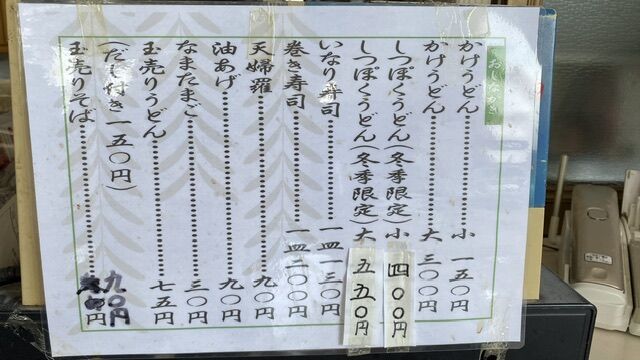 おしながき
かけうどん 小 一五〇円
かけうどん 大 三〇〇円
しっぽくうどん(冬季限定)小 四〇〇円
しっぽくうどん(冬季限定)大 五五〇円
いなり寿司 一四一三〇円
巻き寿司 一四二〇〇円
天婦羅 九〇円
油あげ 九〇円
なまたまご 三〇円
玉売りうどん 七五円
(だし付き一五〇円)
玉売りそば 九〇円